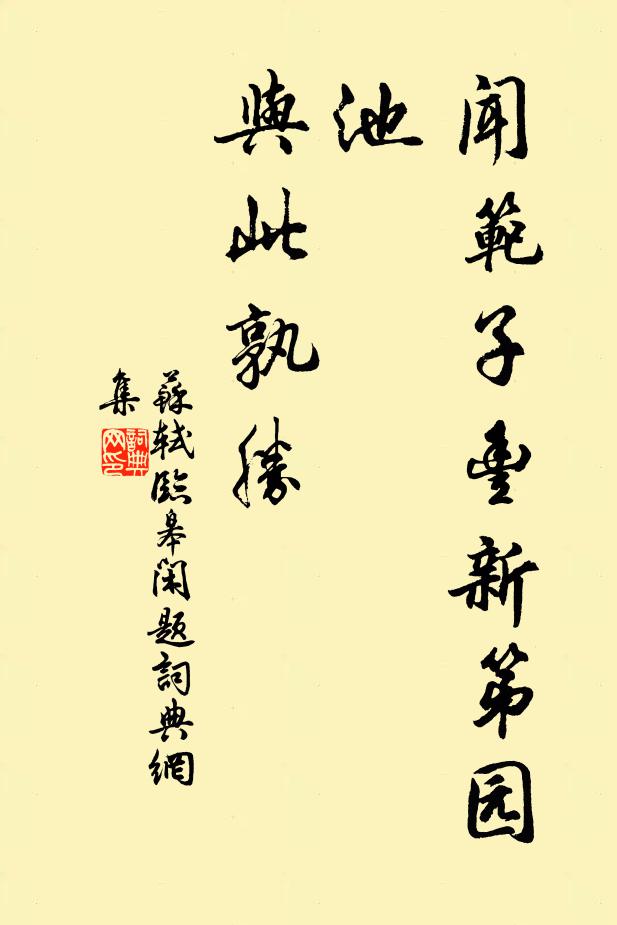 聞範子豊新第园
池
與此孰勝
蘇軾臨皋閑題詞典網
集
詞典
网印